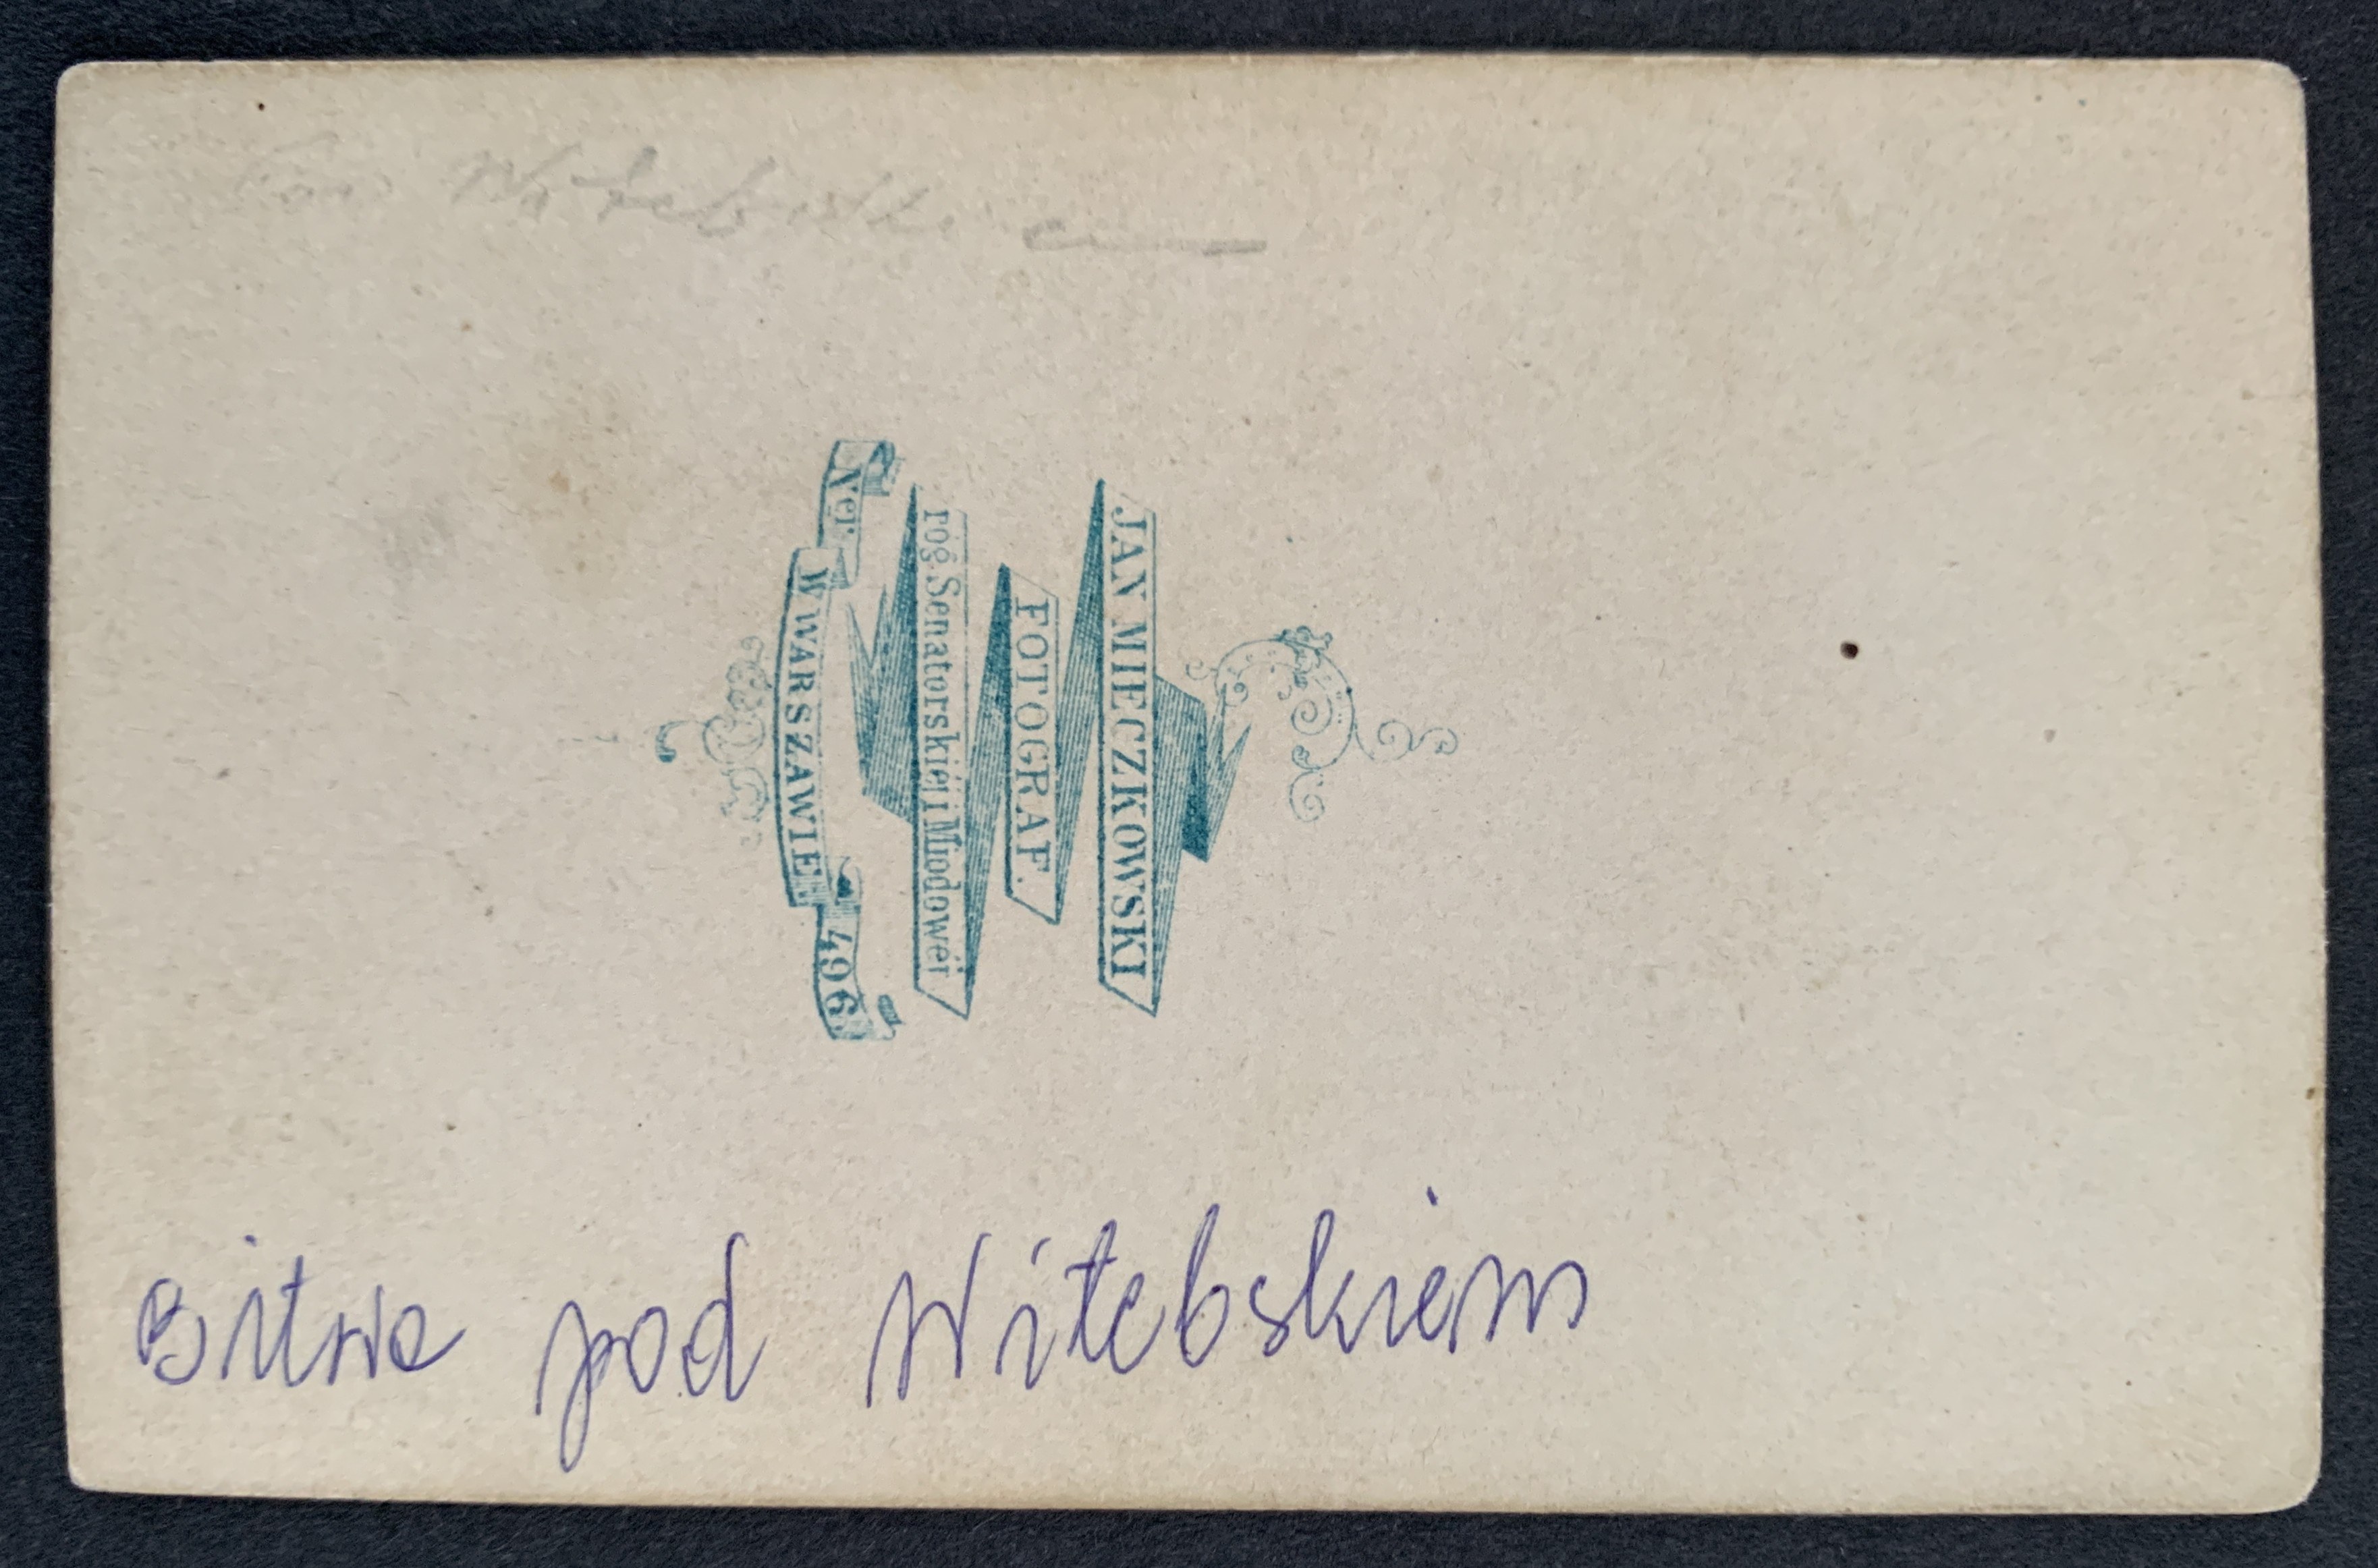 Witebskiem
JAN MIECZKOWSKI
FOTOGRAF.
róg Senatorskiéj i Miodowéj
Ner 496.
W WARSZAWIE
Bitwa pod Witebskiem